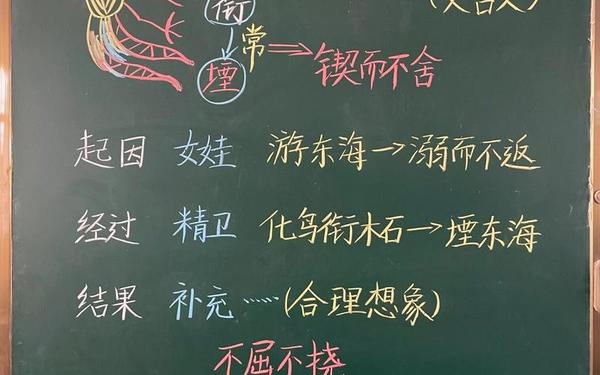 衔 (文言文)
常⇒锲而不舍
堙
起因 女娃 游东海→溺而不返
经过 精卫 化鸟衔木石→堙东海
结果 补充……(合理想象)
不屈不挠